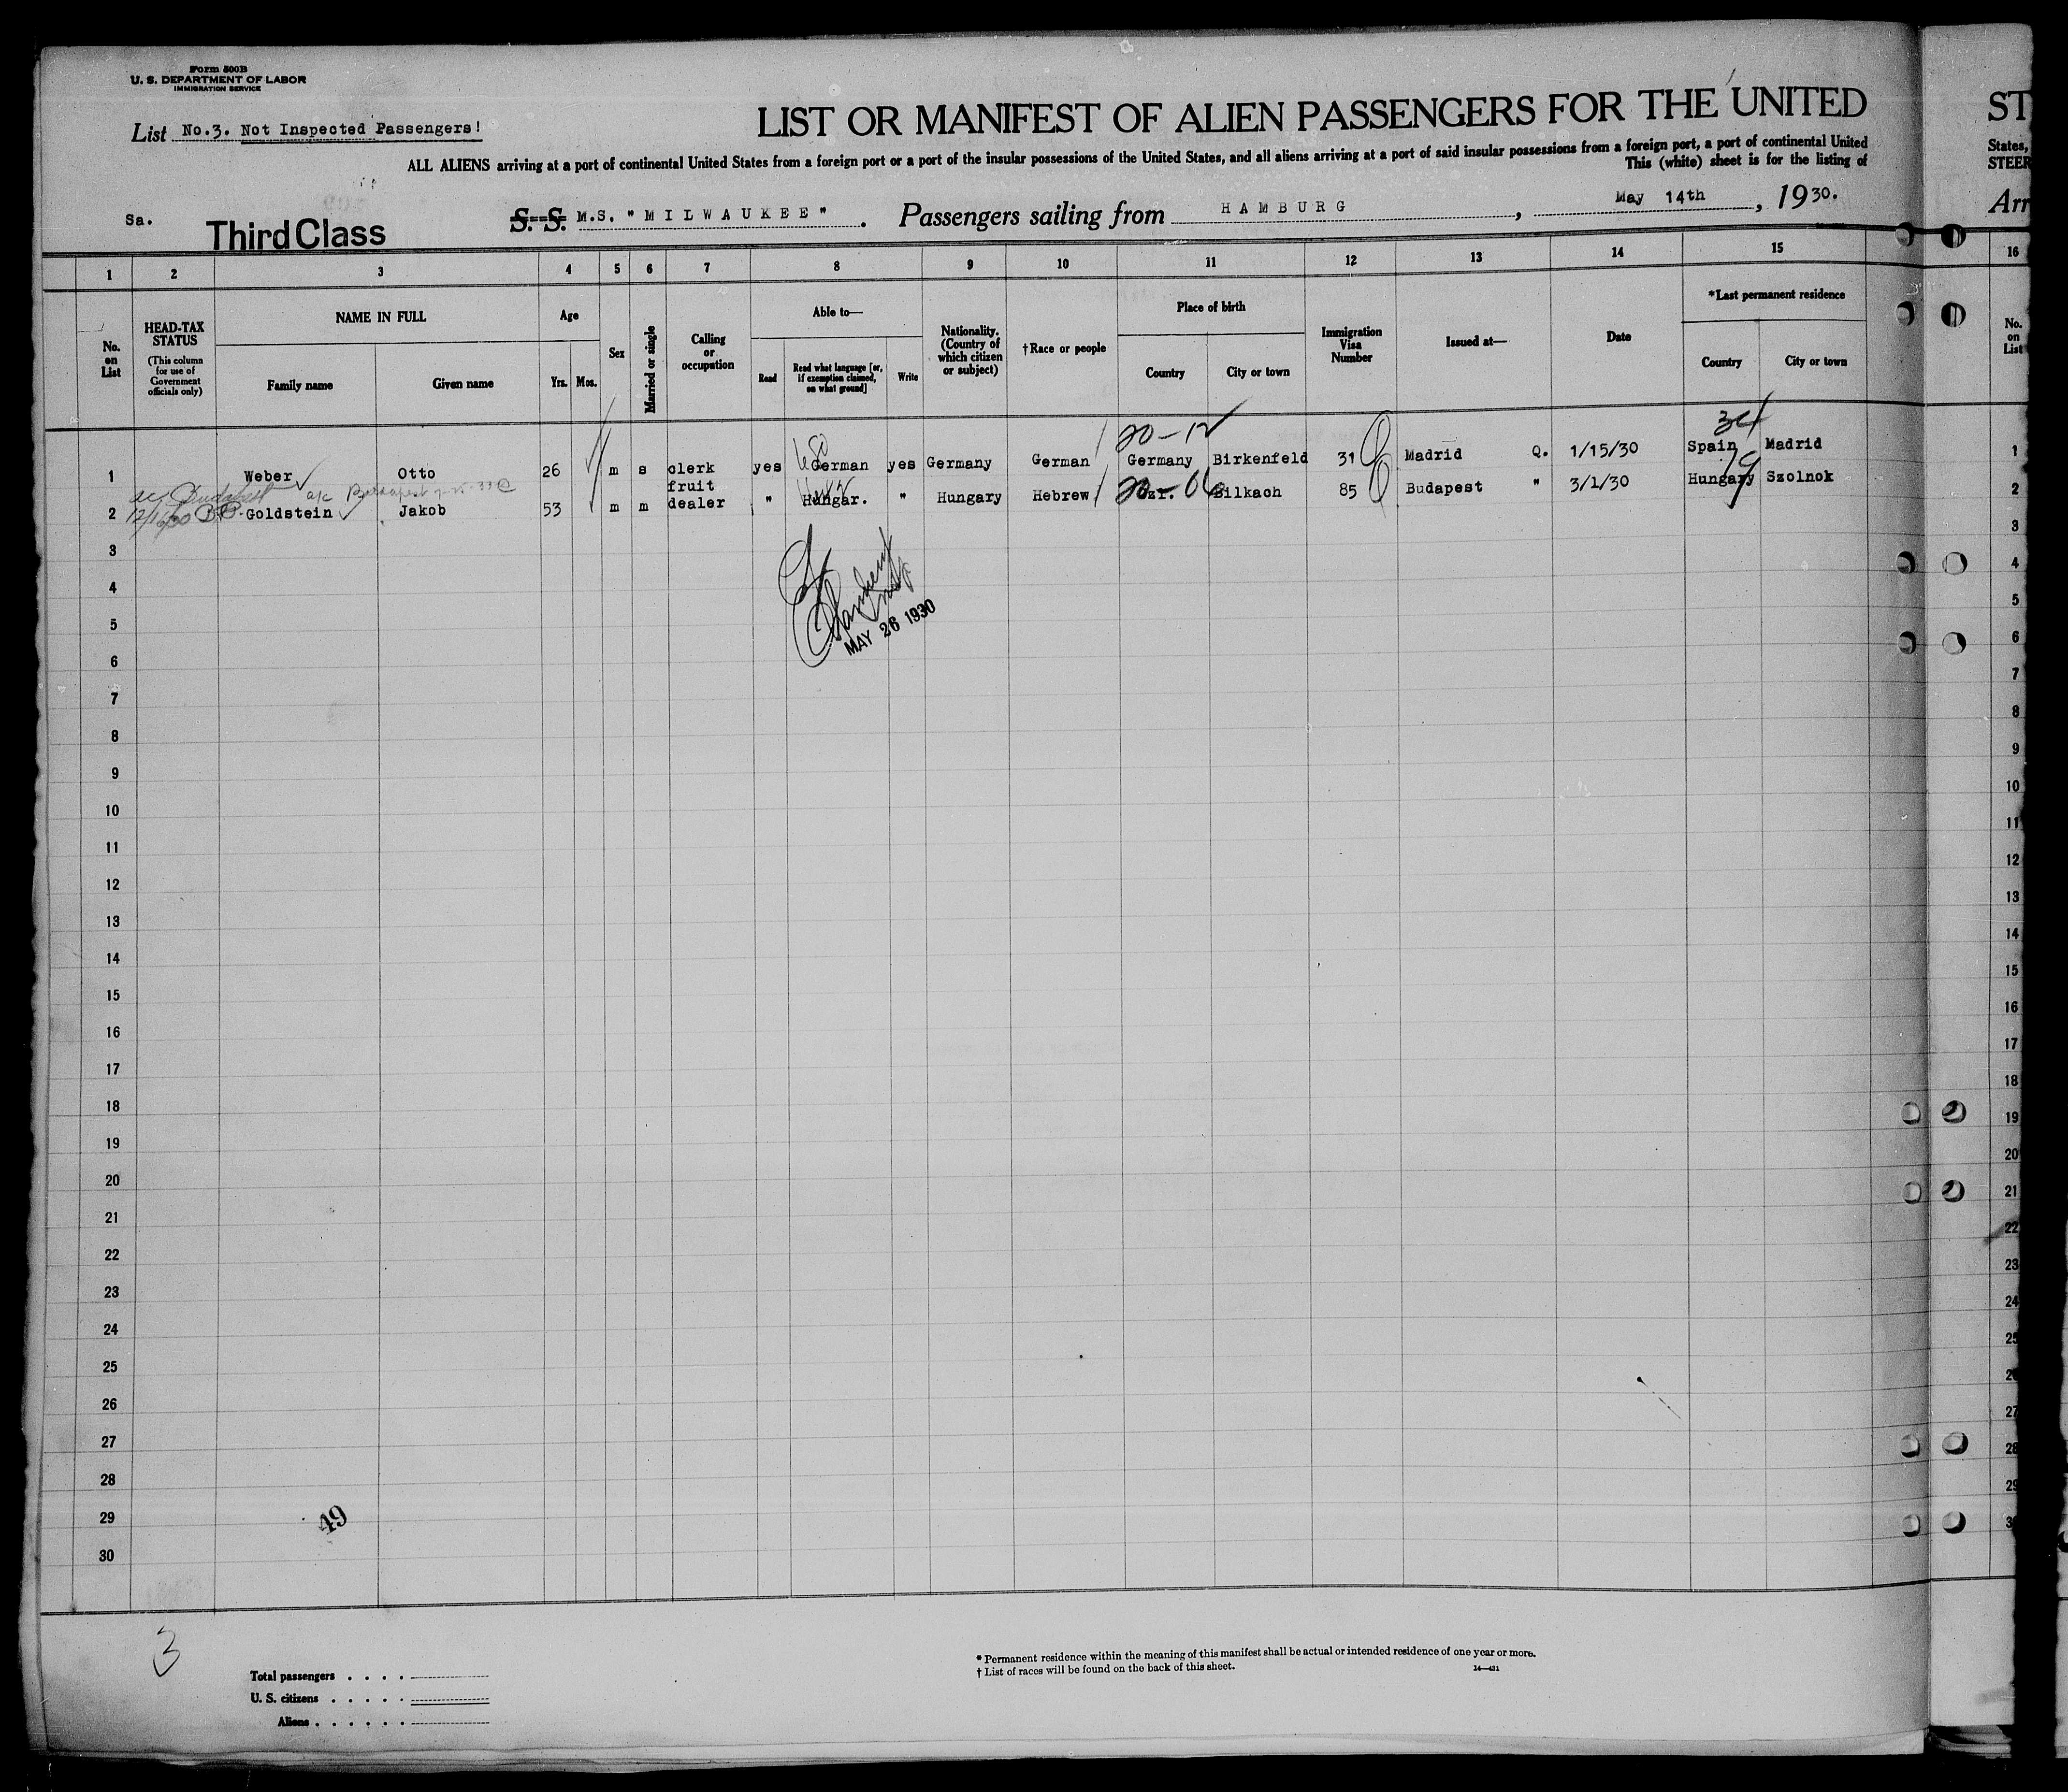 Form 500B
U. S. DEPARTMENT OF LABOR
IMMIGRATION SERVICE
List No.3. Not Inspected Passengers!
LIST OR MANIFEST OF ALIEN PASSENGERS FOR THE UNITED
ST
ALL ALIENS arriving at a port of continental United States from a foreign port or a port of the insular possessions of the United States, and all aliens arriving at a port of said insular possessions from a foreign port, a port of continental United
States,
This (white) sheet is for the listing of
STEER
Sa.
Third Class
S. S. M.S. "MILWAUKEE". Passengers sailing from HAMBURG, May 14th, 1930.
Arr
1 2 3 4 5 6 7 8 9 10 11 12 13 14 15 16
No. on List
HEAD-TAX STATUS
(This column for use of Government officials only)
NAME IN FULL
Family name
Given name
Age
Yrs.
Mos.
Sex
Married or single
Calling or occupation
Able to—
Read
Read what language [or, if exemption claimed, on what ground]
Write
Nationality. (Country of which citizen or subject)
†Race or people
Place of birth
Country
City or town
Immigration Visa Number
Issued at—
Date
*Last permanent residence
Country
City or town
No. on List
20-12
34
1 Weber Otto 26 m s clerk yes German yes Germany German Germany Birkenfeld 31 Madrid Q. 1/15/30 Spain Madrid 1
ac Budapest a/c Budapest
2 Goldstein Jakob 53 m m fruit dealer " Hungar. " Hungary Hebrew Bilkach 85 Budapest " 3/1/30 Hungary Szolnok 2
3 3
4 4
5 5
MAY 26 1930
6 6
7 7
8 8
9 9
10 10
11 11
12 12
13 13
14 14
15 15
16 16
17 17
18 18
19 19
20 20
21 21
22 22
23 23
24 24
25 25
26
27 27
28 28
29 29
49
30
3
Total passengers
U. S. citizens
Aliens
* Permanent residence within the meaning of this manifest shall be actual or intended residence of one year or more.
† List of races will be found on the back of this sheet.
14—431